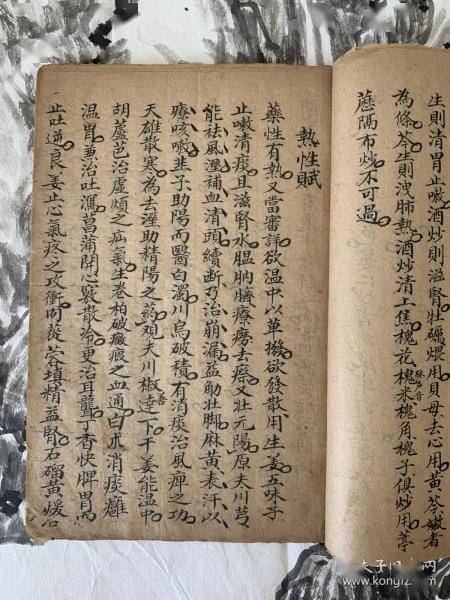 生則清胃止嗽酒炒則滋腎牡礪煨用貝母去心用黃芩嫩者
為條芩生則洩肺熱酒炒清上焦槐花槐米槐角槐子俱炒用葶
藶隔布炒不可過
熱性賦
藥性有熱又當審詳欲溫中以蓽撥欲發散用生姜五味子
止嗽清痰且滋腎水膃肭臍療癆去瘵又壯元陽原夫川芎
能祛風溼補血清頭續斷乃治崩漏益筋壯脚麻黃表汗以
療咳嗽韭子助陽而醫白濁川烏破積有消痰治風痺之功
天雄散寒為去溼助精陽之藥观夫川椒達下干姜能溫中
胡蘆芭治虛煩之疝氣生卷柏破癥瘕之血通白朮消痰癰
溫胃兼治吐瀉菖蒲開心竅散冷更治耳聾丁香快脾胃而
止吐逆良姜止心氣疼之攻衝肉蓯蓉填精益腎石硫黃煖